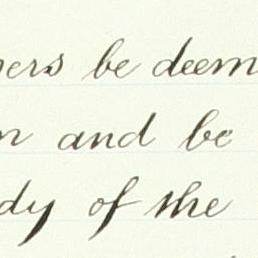 ers be deem
n and be
dy of the